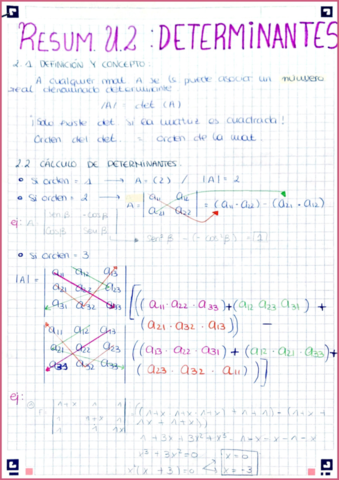 RESUM. U.2 : DETERMINANTES
2.1 DEFINICIÓN Y CONCEPTO:
A cualquier mat. A se le puede asociar un número
real denominado determinante
|A| = det (A)
¡Solo existe det. si la matriz es cuadrada!
Orden del det. = orden de la mat.
2.2 CÁLCULO DE DETERMINANTES.
• Si orden = 1 → A = (2) / |A| = 2
• Si orden = 2 → A = | a11 a12 |
| a21 a22 | = (a11 · a22) -
ej: A = | sen β - cos β |
| cos β sen β |
→ sen² β - (- cos² β) = 1
• Si orden = 3
|A| = | a11 a12 a13 |
| a21 a22 a23 |
| a31 a32 a33 |
[((a11 · a22 · a33) + (a12 a23 a31) +
(a21 · a32 · a13)) -
| a11 a12 a13 |
| a21 a22 a23 |
| a32 a33 |
((a13 · a22 · a31) + (a12 · a21 · a33) +
(a23 · a32 · a11))]
ej:
x³ + 3x² = 0
x² (x + 3) = 0
x = 0
x = -3